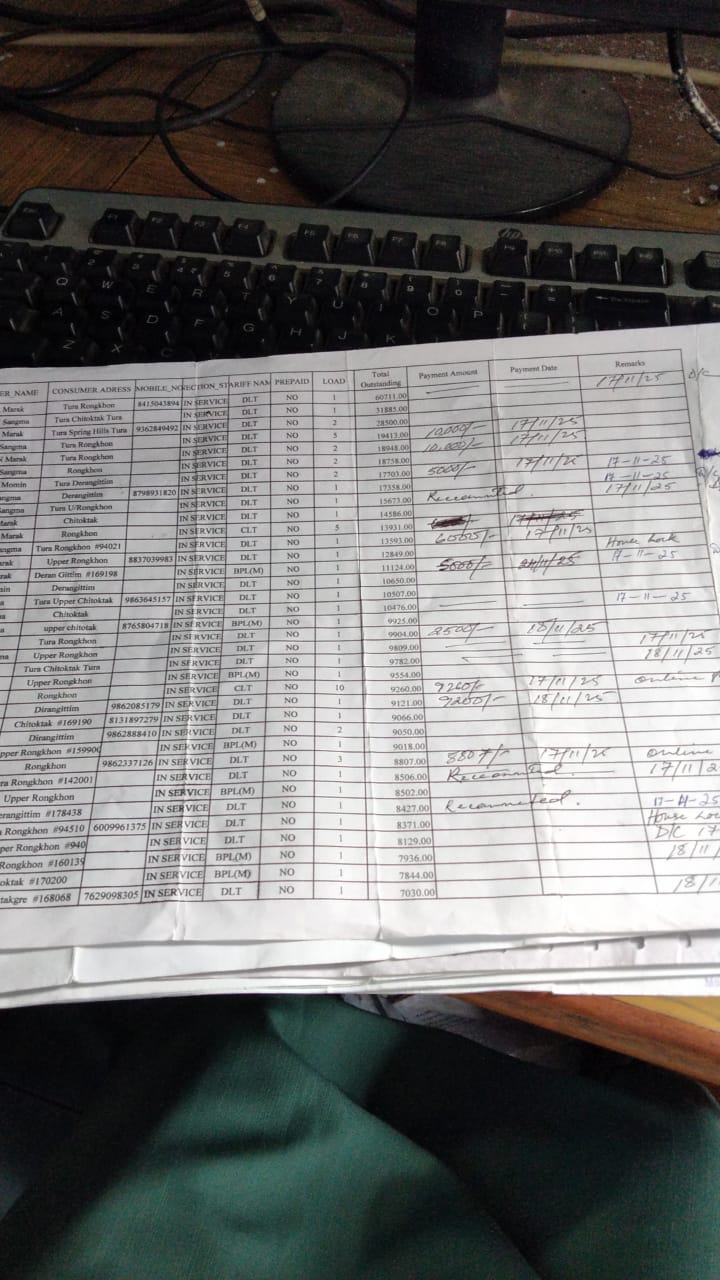 ER_NAME CONSUMER ADRESS MOBILE_NO SECTION_ST TARIFF NAM PREPAID LOAD Total Outstanding Payment Amount Payment Date Remarks
Marak Tura Rongkhon 8415043894 IN SERVICE DLT NO 1 60711.00 17/11/25 D/C
Sangma Tura Chitoktak Tura IN SERVICE DLT NO 1 31885.00
Marak Tura Spring Hills Tura 9362849492 IN SERVICE DLT NO 2 28500.00
Sangma Tura Rongkhon IN SERVICE DLT NO 5 19413.00 10,000/- 17/11/25
Marak Tura Rongkhon IN SERVICE DLT NO 2 18948.00 10,000/- 17/11/25
Sangma Rongkhon IN SERVICE DLT NO 2 18758.00
Momin Tura Derangittim IN SERVICE DLT NO 2 17703.00 5000/- 17/11/25 17-11-25
ngma Derangittim 8798931820 IN SERVICE DLT NO 1 17358.00 17-11-25
Sangma Tura U/Rongkhon IN SERVICE DLT NO 1 15673.00 17/11/25
arak Chitoktak IN SERVICE DLT NO 1 14586.00
Marak Rongkhon IN SERVICE CLT NO 5 13931.00
ngma Tura Rongkhon #94021 IN SERVICE DLT NO 1 13593.00 17/11/25
rak Upper Rongkhon 8837039983 IN SERVICE DLT NO 1 12849.00 House Lock
rak Deran Gittim #169198 IN SERVICE BPL(M) NO 1 11124.00 5000/- 17-11-25
min Derangittim IN SERVICE DLT NO 1 10650.00
a Tura Upper Chitoktak 9863645157 IN SERVICE DLT NO 1 10507.00
Chitoktak IN SERVICE DLT NO 1 10476.00 17-11-25
a upper chitotak 8765804718 IN SERVICE BPL(M) NO 1 9925.00
Tura Rongkhon IN SERVICE DLT NO 1 9904.00
na Upper Rongkhon IN SERVICE DLT NO 1 9809.00 17/11/25
Tura Chitoktak Tura IN SERVICE DLT NO 1 9782.00 18/11/25
Upper Rongkhon IN SERVICE BPL(M) NO 1 9554.00
Rongkhon IN SERVICE CLT NO 10 9260.00 9260/- 17/11/25 online
Dirangittim 9862085179 IN SERVICE DLT NO 1 9121.00 18/11/25
Chitoktak #169190 8131897279 IN SERVICE DLT NO 1 9066.00
Dirangittim 9862888410 IN SERVICE DLT NO 2 9050.00
pper Rongkhon #159900 IN SERVICE BPL(M) NO 1 9018.00
Rongkhon 9862337126 IN SERVICE DLT NO 3 8807.00 8807/- 17/11/25 online
ra Rongkhon #142001 IN SERVICE DLT NO 1 8506.00 17/11/2
Upper Rongkhon IN SERVICE BPL(M) NO 1 8502.00
erangittim #178438 IN SERVICE DLT NO 1 8427.00 17-11-25
Rongkhon #94510 6009961375 IN SERVICE DLT NO 1 8371.00 House Loc
per Rongkhon #940 IN SERVICE DLT NO 1 8129.00 D/C 17
Rongkhon #160139 IN SERVICE BPL(M) NO 1 7936.00 18/11/
oktak #170200 IN SERVICE BPL(M) NO 1 7844.00
takgre #168068 7629098305 IN SERVICE DLT NO 1 7030.00 18/1